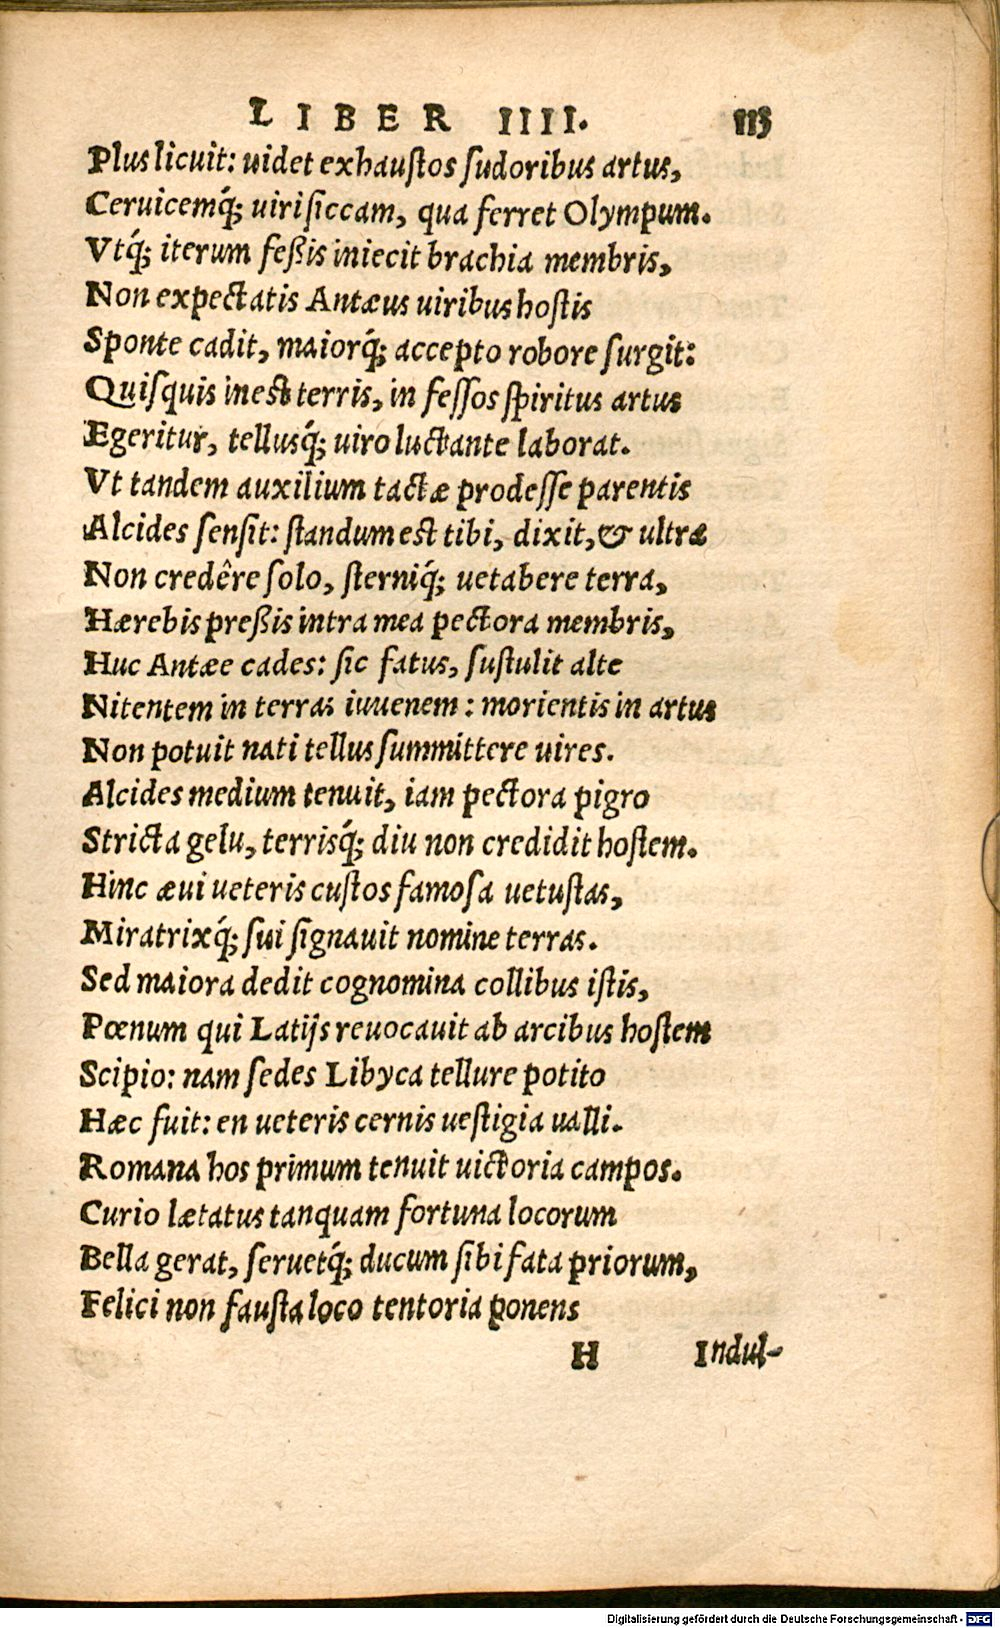 LIBER IIII. 113
Plus licuit: uidet exhaustos sudoribus artus,
Ceruicemq́; uiri siccam, qua ferret Olympum.
Vtq́; iterum feßis iniecit brachia membris,
Non expectatis Antæus uiribus hostis
Sponte cadit, maiorq́; accepto robore surgit:
Quisquis inest terris, in fessos spiritus artus
Egeritur, tellusq́; uiro luctante laborat.
Vt tandem auxilium tactæ prodesse parentis
Alcides sensit: standum est tibi, dixit, & ultra
Non credêre solo, sterniq́; uetabere terra,
Hærebis preßis intra mea pectora membris,
Huc Antæe cades: sic fatus, sustulit alte
Nitentem in terras iuuenem: morientis in artus
Non potuit nati tellus summittere uires.
Alcides medium tenuit, iam pectora pigro
Stricta gelu, terrisq́; diu non credidit hostem.
Hinc æui ueteris custos famosa uetustas,
Miratrixq́; sui signauit nomine terras.
Sed maiora dedit cognomina collibus istis,
Pœnum qui Latijs reuocauit ab arcibus hostem
Scipio: nam sedes Libyca tellure potito
Hæc fuit: en ueteris cernis uestigia ualli.
Romana hos primum tenuit uictoria campos.
Curio lætatus tanquam fortuna locorum
Bella gerat, seruetq́; ducum sibi fata priorum,
Felici non fausta loco tentoria ponens
H Indul-
Digitalisierung gefördert durch die Deutsche Forschungsgemeinschaft - DFG